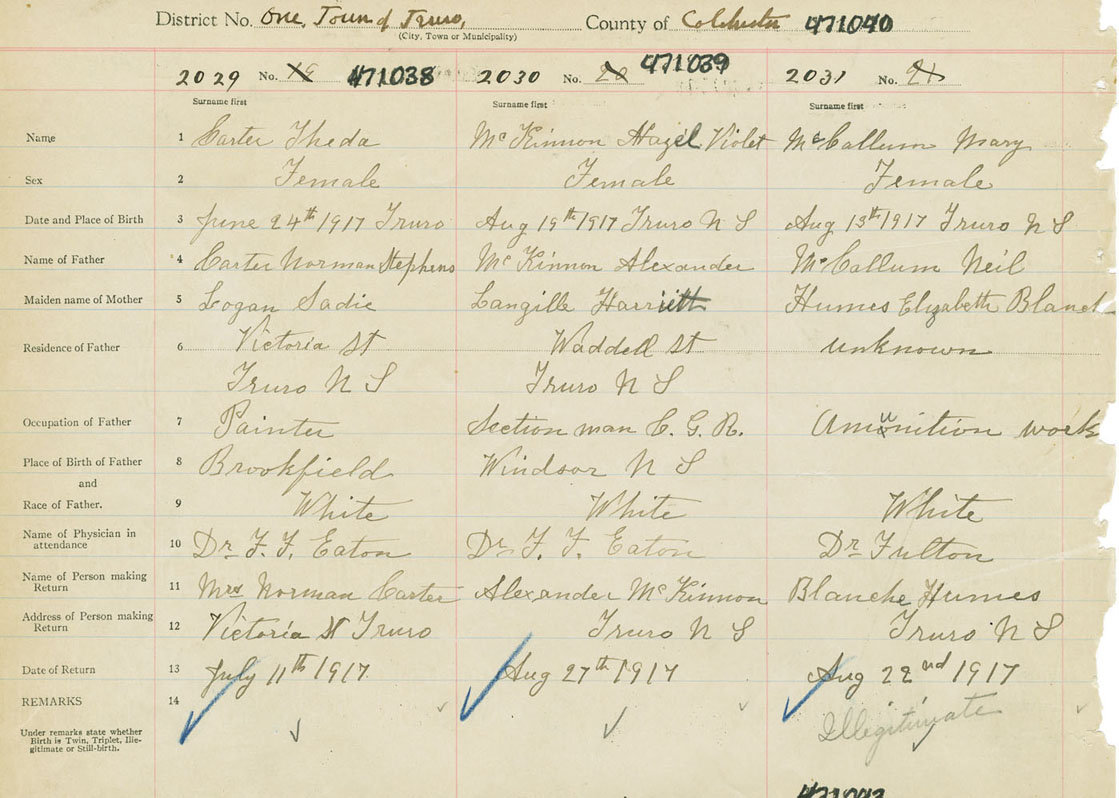 District No. One, Town of Truro, County of Colchester 471040
(City, Town or Municipality)
2029 No. 19 471038 2030 No. 20 471039 2031 No. 21
Surname first Surname first Surname first
Name 1 Carter Theda McKinnon Hazel Violet McCallum Mary
Sex 2 Female Female Female
Date and Place of Birth 3 June 24th 1917 Truro Aug 19th 1917 Truro N S Aug 13th 1917 Truro N S
Name of Father 4 Carter Norman Stephens McKinnon Alexander McCallum Neil
Maiden name of Mother 5 Logan Sadie Langille Harriett Humes Elizabeth Blanch
Residence of Father 6 Victoria St Waddell St unknown
Truro N S Truro N S
Occupation of Father 7 Painter Section man C. G. R. Amunition work
Place of Birth of Father 8 Brookfield Windsor N S
and
Race of Father. 9 White White White
Name of Physician in attendance 10 Dr F. F. Eaton Dr F. F. Eaton Dr Fulton
Name of Person making Return 11 Mrs Norman Carter Alexander McKinnon Blanche Humes
Address of Person making Return 12 Victoria St Truro Truro N S Truro N S
Date of Return 13 July 11th 1917 Aug 27th 1917 Aug 22nd 1917
REMARKS 14 Illegitimate
Under remarks state whether
Birth is Twin, Triplet, Ille-
gitimate or Still-birth.